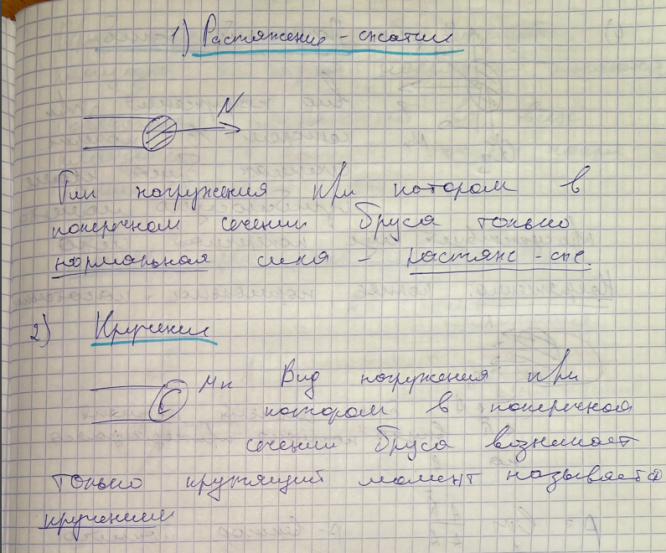 1) Растяжение - сжатие
N
Тип нагружения при котором в
поперечном сечении бруса только
нормальная сила - растяж-сж.
2) Кручение
Mк Вид нагружения при
котором в поперечном
сечении бруса возникает
только крутящий момент называется
кручением